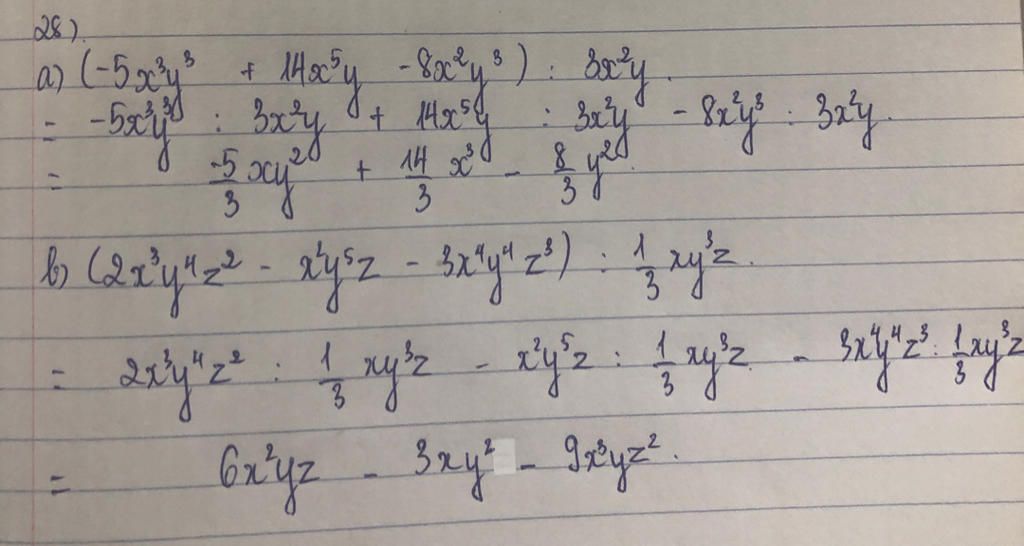 28).
a) (-5x³y³ + 14x⁵y - 8x²y³) : 3x²y.
= -5x³y³ : 3x²y + 14x⁵y : 3x²y - 8x²y³ : 3x²y.
= -5/3 xy² + 14/3 x³ - 8/3 y².
b) (2x³y⁴z² - x²y⁵z - 3x⁴y⁴z³) : 1/3 xy³z.
= 2x³y⁴z² : 1/3 xy³z - x²y⁵z : 1/3 xy³z. - 3x⁴y⁴z³ : 1/3 xy³z
= 6x²yz - 3xy² - 9x³yz².